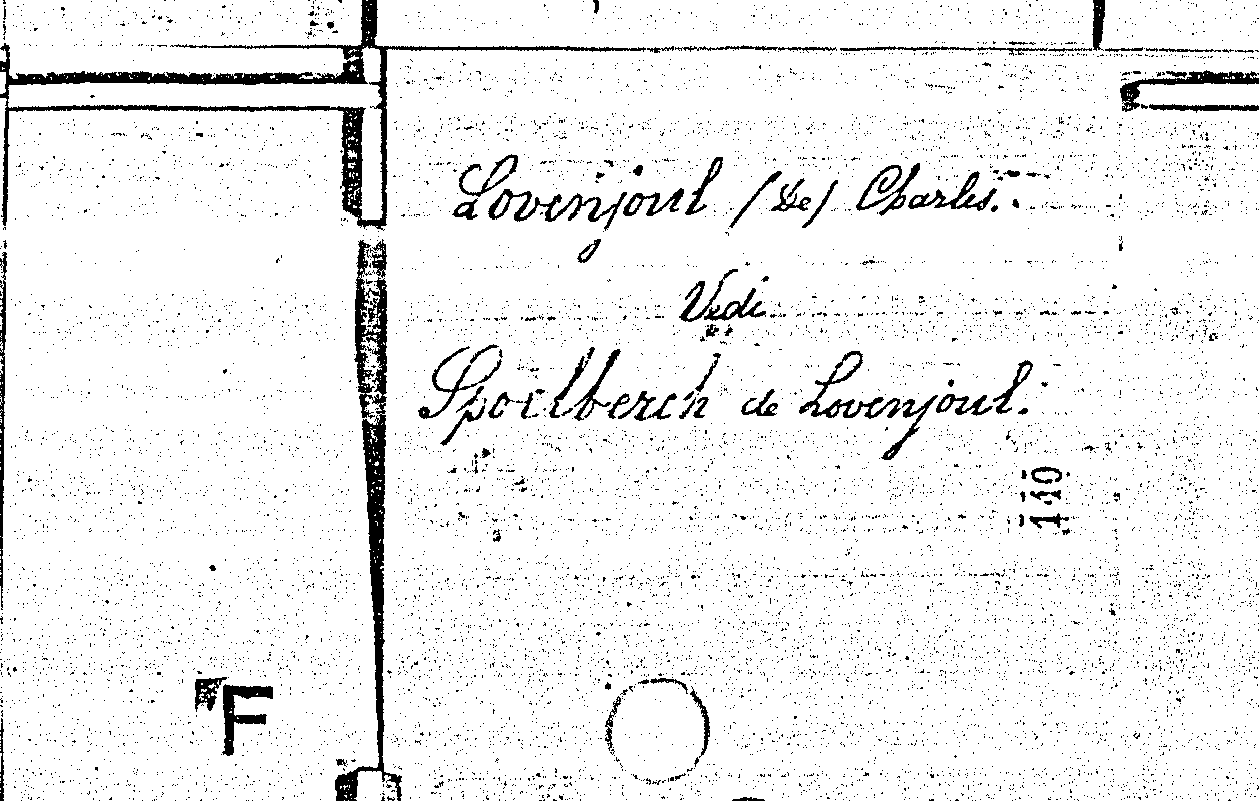 Lovenjoul (de) Charles.
Vedi
Spoelberch de Lovenjoul.
110
F